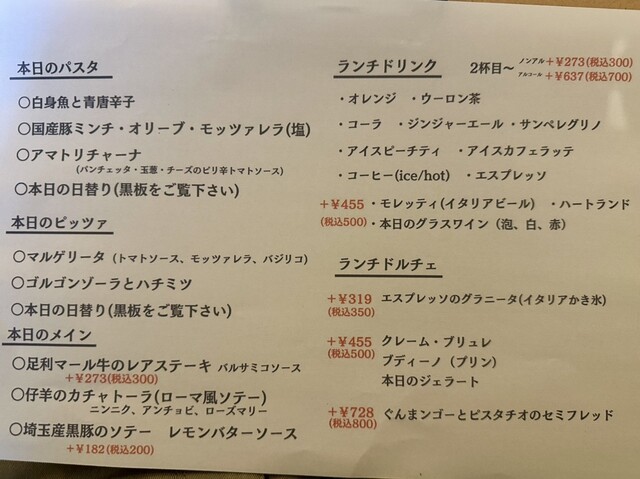 本日のパスタ
○白身魚と青唐辛子
○国産豚ミンチ・オリーブ・モッツァレラ(塩)
○アマトリチャーナ
(パンチェッタ・玉葱・チーズのピリ辛トマトソース)
○本日の日替り(黒板をご覧下さい)
本日のピッツァ
○マルゲリータ (トマトソース、モッツァレラ、バジリコ)
○ゴルゴンゾーラとハチミツ
○本日の日替り(黒板をご覧下さい)
本日のメイン
○足利マール牛のレアステーキ バルサミコソース
+¥273(税込300)
○仔羊のカチャトーラ(ローマ風ソテー)
ニンニク、アンチョビ、ローズマリー
○埼玉産黒豚のソテー レモンバターソース
+¥182(税込200)
ランチドリンク 2杯目〜 ノンアル+¥273(税込300)
アルコール+¥637(税込700)
・オレンジ ・ウーロン茶
・コーラ ・ジンジャーエール ・サンペレグリノ
・アイスピーチティ ・アイスカフェラッテ
・コーヒー(ice/hot) ・エスプレッソ
+¥455 ・モレッティ(イタリアビール) ・ハートランド
(税込500) ・本日のグラスワイン(泡、白、赤)
ランチドルチェ
+¥319 エスプレッソのグラニータ(イタリアかき氷)
(税込350)
+¥455 クレーム・ブリュレ
(税込500) ブディーノ(プリン)
本日のジェラート
+¥728 ぐんまンゴーとピスタチオのセミフレッド
(税込800)